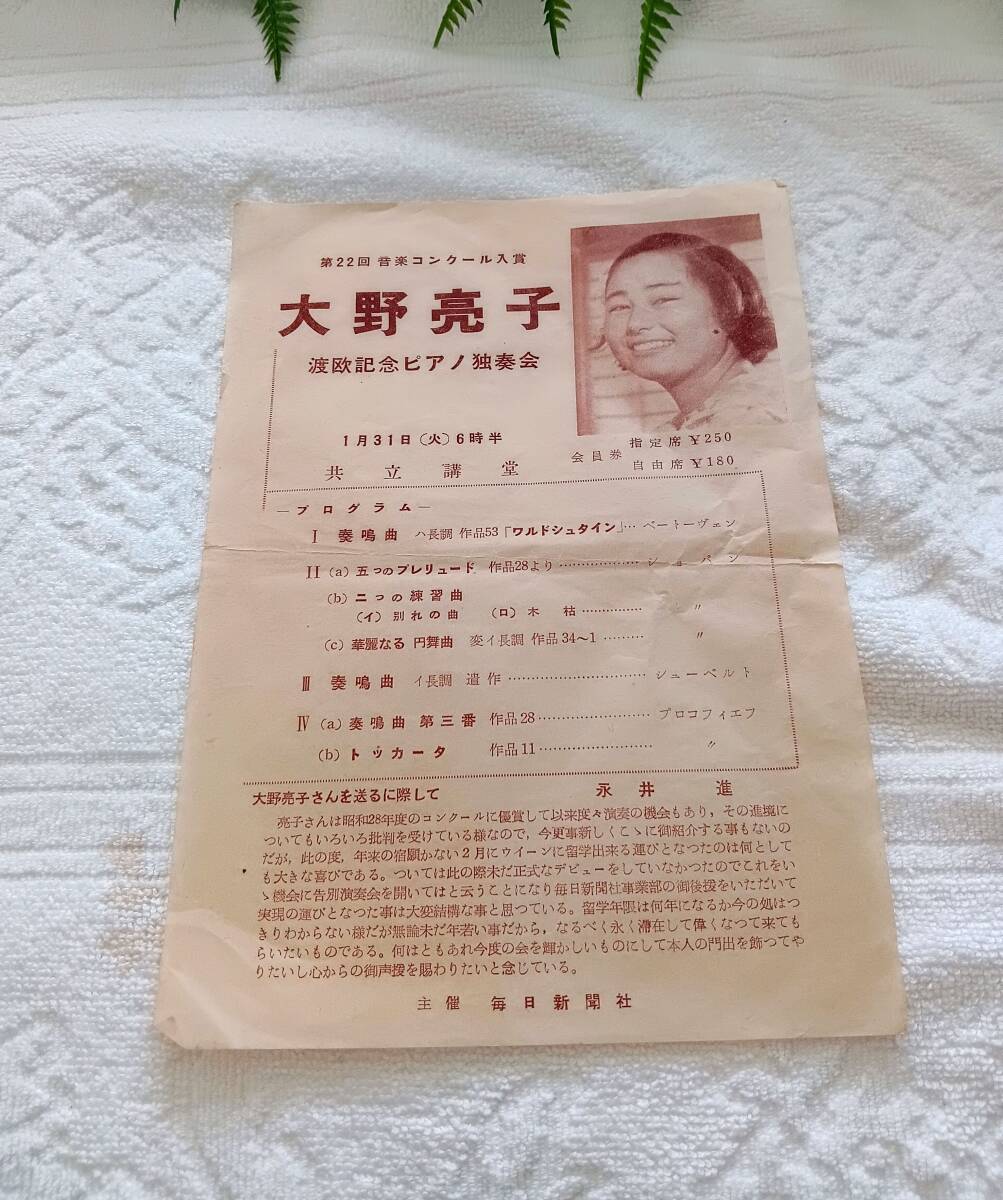 第22回 音楽コンクール入賞
大野亮子
渡欧記念ピアノ独奏会
1月31日(火)6時半
共立講堂
会員券 指定席 ¥250
自由席 ¥180
—プログラム—
I 奏鳴曲 ハ長調 作品53「ワルドシュタイン」… ベートーヴェン
II (a) 五つのプレリュード 作品28より ……………… ショパン
(b) 二つの練習曲
(イ) 別れの曲 (ロ) 木枯 …………… 〃
(c) 華麗なる円舞曲 変イ長調 作品34〜1 ……… 〃
III 奏鳴曲 イ長調 遺作 ………………………… シューベルト
IV (a) 奏鳴曲 第三番 作品28 …………………… プロコフィエフ
(b) トッカータ 作品11 …………………… 〃
大野亮子さんを送るに際して 永井 進
亮子さんは昭和28年度のコンクールに優賞して以来度々演奏の機会もあり，その進境に
ついてもいろいろ批判を受けている様なので，今更事新しくこゝに御紹介する事もないの
だが，此の度，年来の宿願かない2月にウイーンに留学出来る運びとなつたのは何として
も大きな喜びである。ついては此の際未だ正式なデビューをしていなかつたのでこれをい
ゝ機会に告別演奏会を開いてはと云うことになり毎日新聞社事業部の御後援をいただいて
実現の運びとなつた事は大変結構な事と思つている。留学年限は何年になるか今の処はつ
きりわからない様だが無論未だ年若い事だから，なるべく永く滞在して偉くなつて来ても
らいたいものである。何はともあれ今度の会を輝かしいものにして本人の門出を飾つてや
りたいし心からの御声援を賜わりたいと念じている。
主催 毎日新聞社